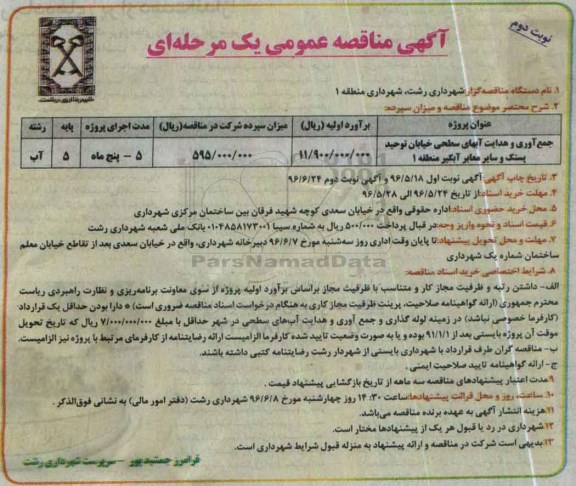 نوبت دوم
آگهی مناقصه عمومی یک مرحله‌ای
شهرداری رشت
۱. نام دستگاه مناقصه‌گزار: شهرداری رشت، شهرداری منطقه ۱
۲. شرح مختصر موضوع مناقصه و میزان سپرده:
عنوان پروژه	برآورد اولیه (ریال)	میزان سپرده شرکت در مناقصه(ریال)	مدت اجرای پروژه	پایه	رشته
جمع‌آوری و هدایت آبهای سطحی خیابان توحید پستک و سایر معابر آبگیر منطقه ۱	۱۱/۹۰۰/۰۰۰/۰۰۰	۵۹۵/۰۰۰/۰۰۰	۵ - پنج ماه	۵	آب
۳. تاریخ چاپ آگهی: آگهی نوبت اول ۹۶/۵/۱۸ و آگهی نوبت دوم ۹۶/۶/۲۴
۴. مهلت خرید اسناد: از تاریخ ۹۶/۵/۲۴ الی ۹۶/۵/۲۸
۵. محل خرید حضوری اسناد: اداره حقوقی واقع در خیابان سعدی کوچه شهید فرقان بین ساختمان مرکزی شهرداری
۶. قیمت اسناد و نحوه واریز وجه: در قبال پرداخت ۵۰۰/۰۰۰ ریال به شماره سیبا ۰۱۰۴۸۵۸۱۷۳۰۰۱ بانک ملی شعبه شهرداری رشت
۷. مهلت و محل تحویل پیشنهادها: تا پایان وقت اداری روز سه‌شنبه مورخ ۹۶/۶/۷ دبیرخانه شهرداری، واقع در خیابان سعدی بعد از تقاطع خیابان معلم
ساختمان شماره یک شهرداری
ParsNamadData
۸. شرایط اختصاصی خرید اسناد مناقصه:
الف- داشتن رتبه و ظرفیت مجاز کار و متناسب با ظرفیت مجاز براساس برآورد اولیه پروژه از سوی معاونت برنامه‌ریزی و نظارت راهبردی ریاست
محترم جمهوری (ارائه گواهینامه صلاحیت، پرینت ظرفیت مجاز کاری به هنگام درخواست اسناد مناقصه ضروری است) * دارا بودن حداقل یک قرارداد
(کارفرما خصوصی نباشد) در زمینه لوله گذاری و جمع آوری و هدایت آب‌های سطحی در شهر حداقل با مبلغ ۷/۰۰۰/۰۰۰/۰۰۰ ریال که تاریخ تحویل
موقت آن پروژه بایستی بعد از ۹۱/۱/۱ بوده و یا به صورت وضعیت تایید شده کارفرما الزامیست ارائه رضایتنامه از کارفرمای مرتبط با پروژه نیز الزامیست.
ب- مناقصه گران طرف قرارداد با شهرداری بایستی از شهردار رشت رضایتنامه کتبی داشته باشند.
ج- ارائه گواهینامه تایید صلاحیت ایمنی.
۹. مدت اعتبار پیشنهادهای مناقصه سه ماهه از تاریخ بازگشایی پیشنهاد قیمت.
۱۰. ساعت، روز و محل قرائت پیشنهادها: ساعت ۱۴:۳۰ روز چهارشنبه مورخ ۹۶/۶/۸ شهرداری رشت (دفتر امور مالی) به نشانی فوق‌الذکر.
۱۱. هزینه انتشار آگهی به عهده برنده مناقصه می‌باشد.
۱۲. شهرداری در رد یا قبول هر یک از پیشنهادها مختار است.
۱۳. بدیهی است شرکت در مناقصه و ارائه پیشنهاد به منزله قبول شرایط شهرداری است.
فرامرز جمشیدپور - سرپرست شهرداری رشت